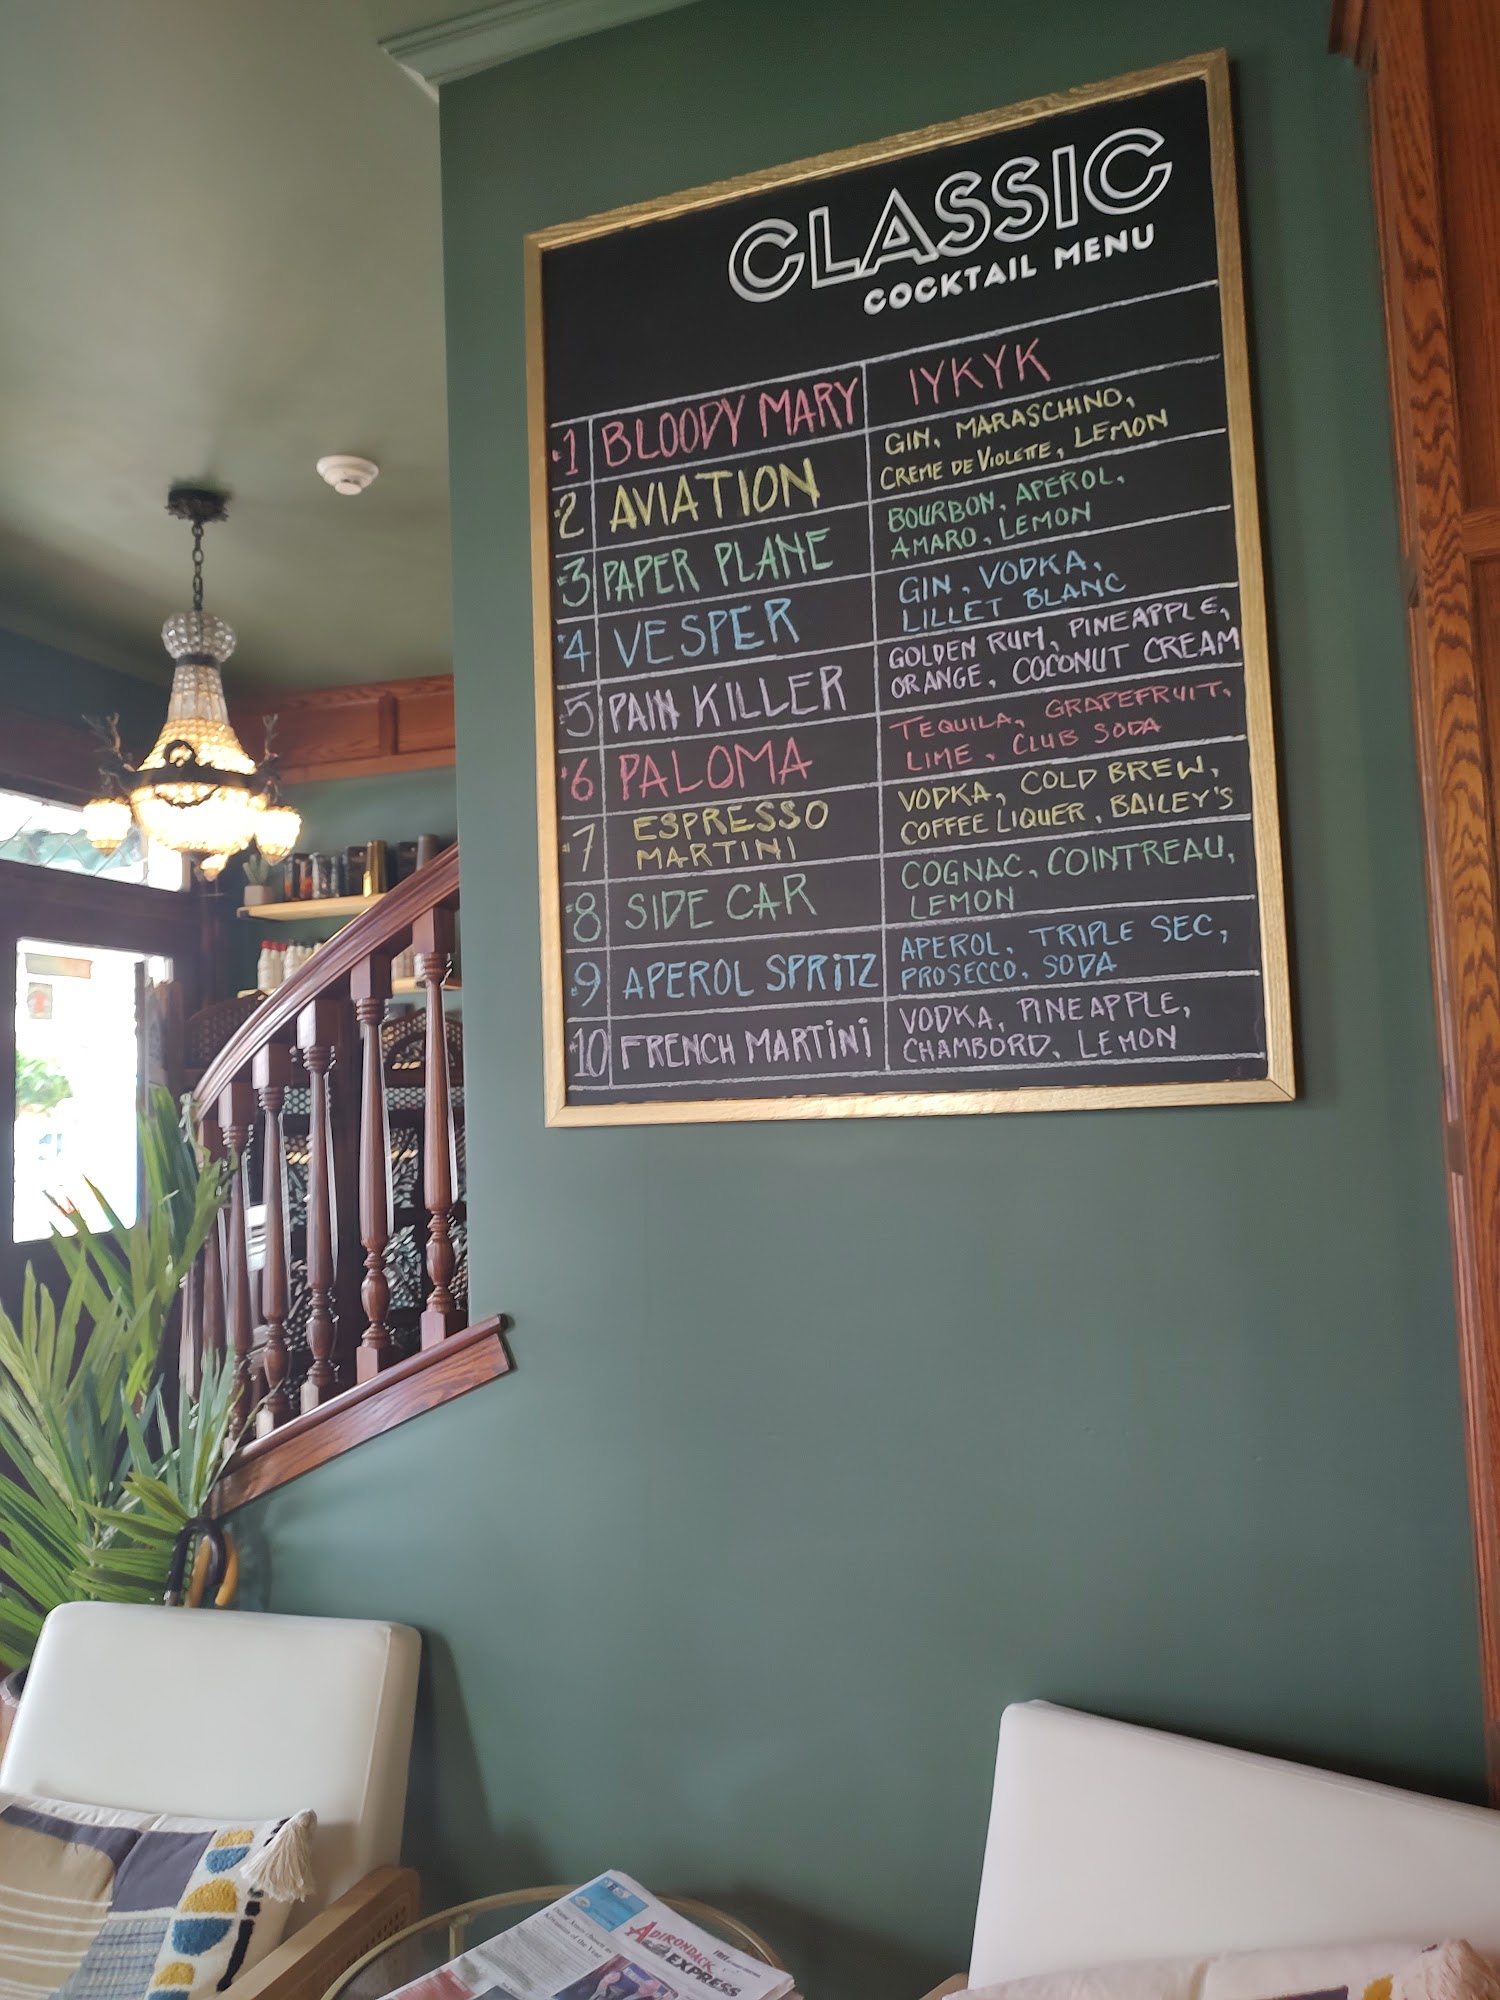 CLASSIC
COCKTAIL MENU
#1 BLOODY MARY IYKYK
#2 AVIATION GIN, MARASCHINO,
CREME DE VIOLETTE, LEMON
#3 PAPER PLANE BOURBON, APEROL,
AMARO, LEMON
#4 VESPER GIN, VODKA,
LILLET BLANC
#5 PAIN KILLER GOLDEN RUM, PINEAPPLE,
ORANGE, COCONUT CREAM
#6 PALOMA TEQUILA, GRAPEFRUIT,
LIME, CLUB SODA
#7 ESPRESSO
MARTINI VODKA, COLD BREW,
COFFEE LIQUER, BAILEY'S
#8 SIDE CAR COGNAC, COINTREAU,
LEMON
#9 APEROL SPRiTZ APEROL, TRIPLE SEC,
PROSECCO, SODA
#10 FRENCH MARTiNi VODKA, PINEAPPLE,
CHAMBORD, LEMON
ADIRONDACK
EXPRESS
FREE
Kiwanian of the Year